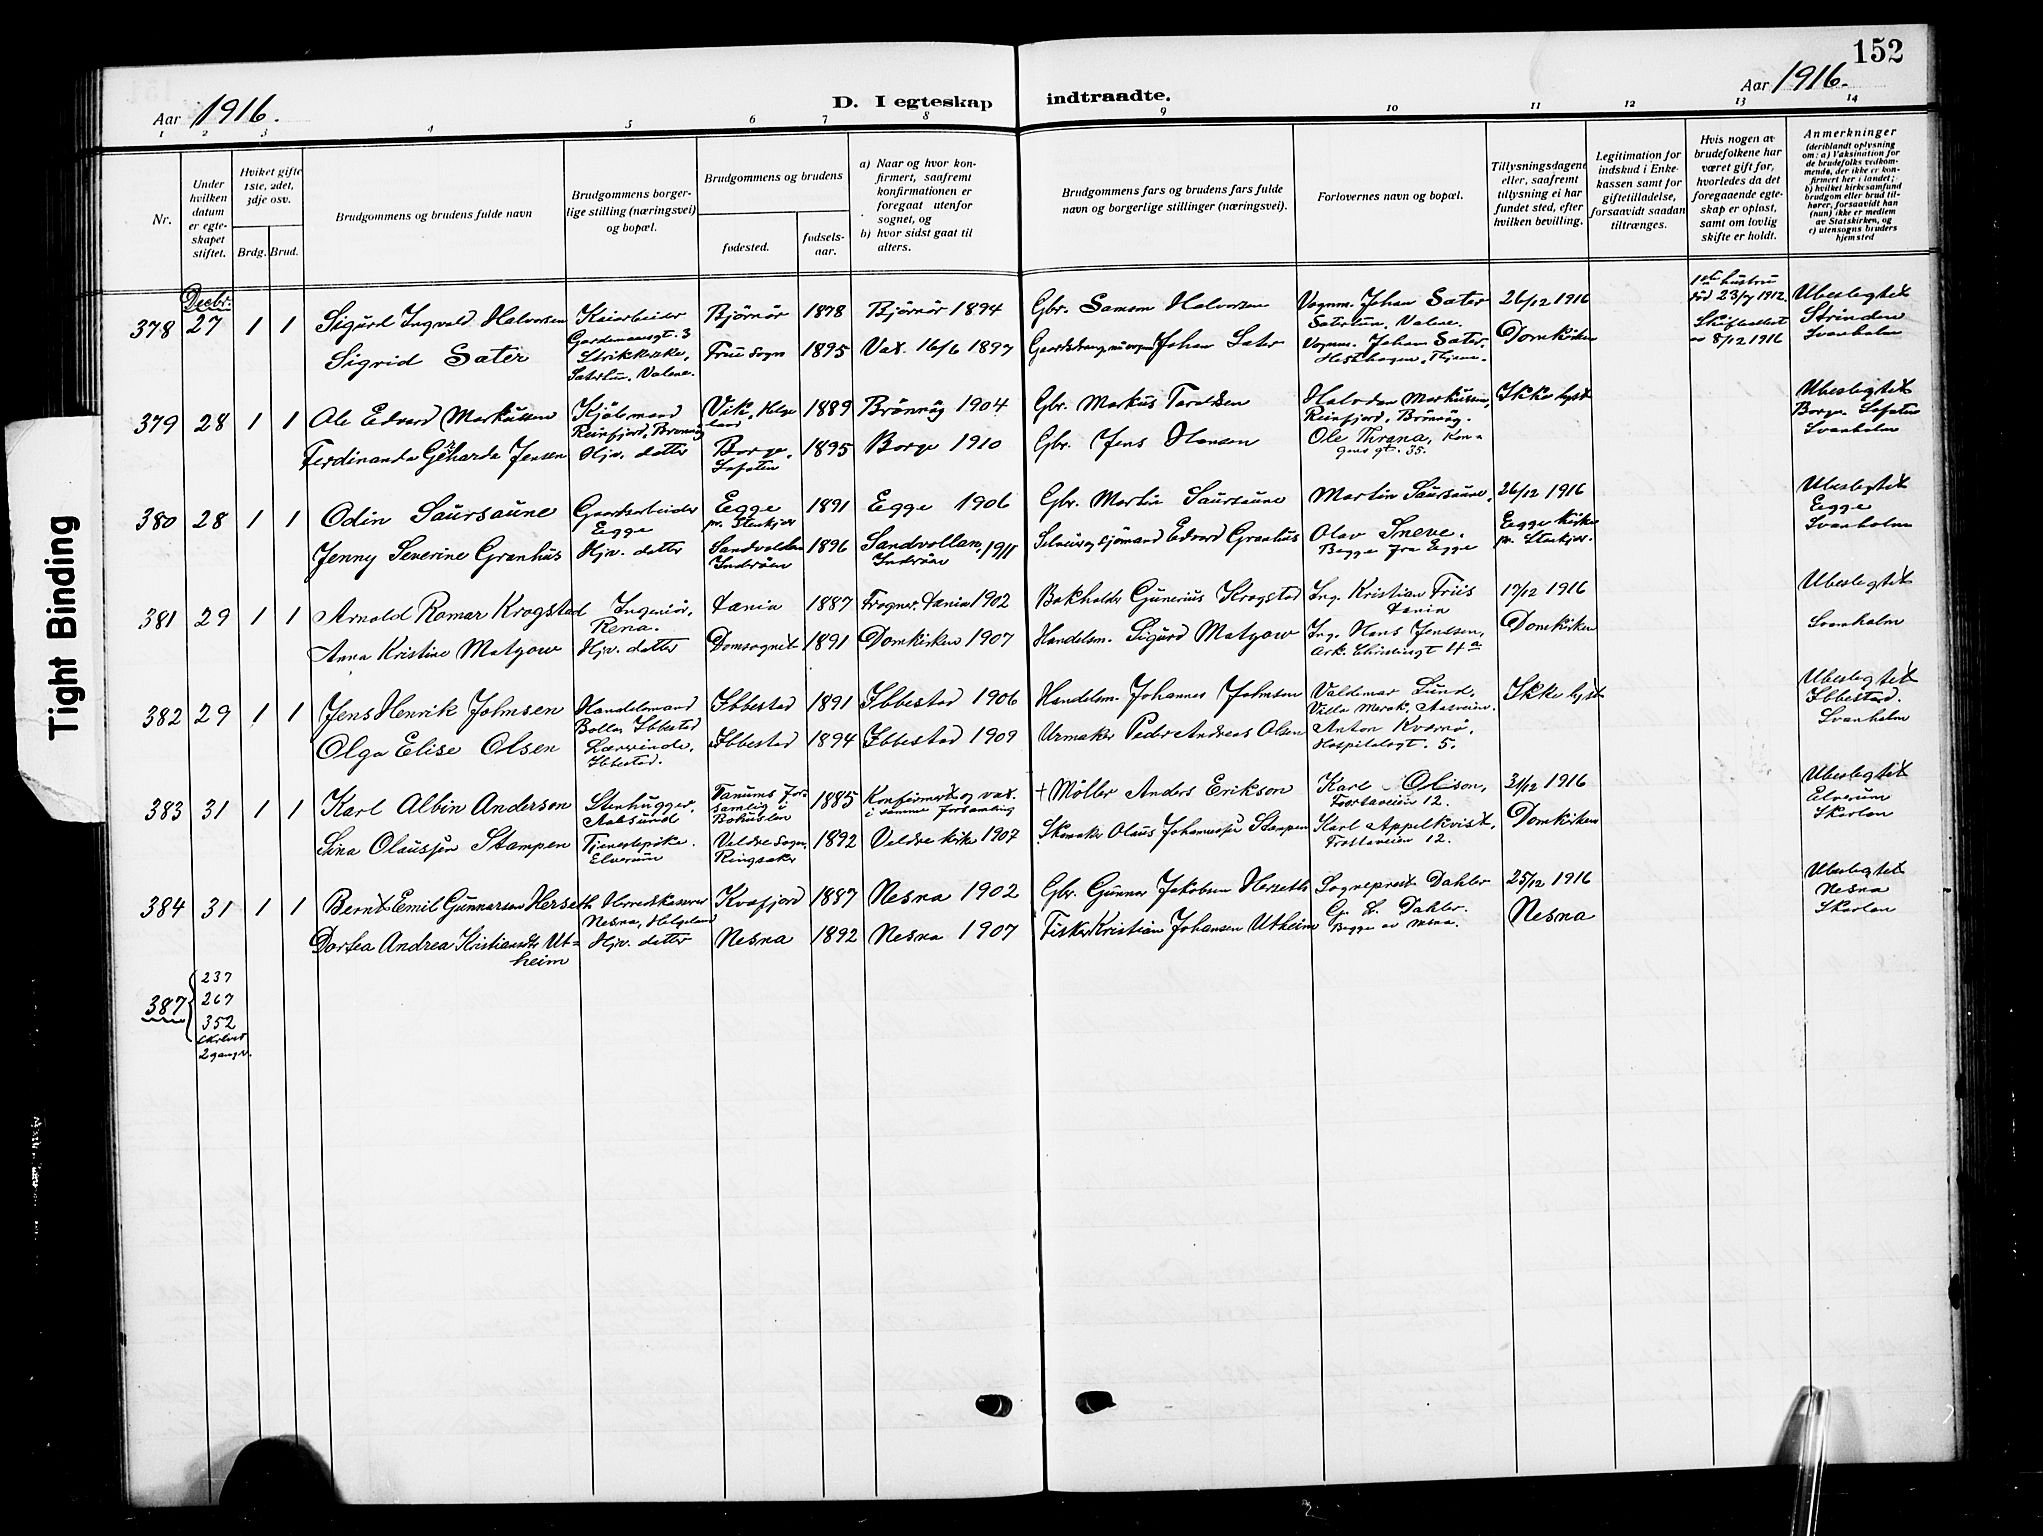 152
Aar 1916.
D. I egteskap indtraadte.
Aar 1916.
1 2 3 4 5 6 7 8 9 10 11 12 13 14
Nr.
Under hvilken datum er egteskapet stiftet.
Hvilket gifte 1ste, 2det, 3dje osv.
Brdg. Brud.
Brudgommens og brudens fulde navn
Brudgommens borgerlige stilling (næringsvei) og bopæl.
Brudgommens og brudens
fødested.
fødselsaar.
a) Naar og hvor konfirmert, saafremt konfirmationen er foregaaet utenfor sognet, og
b) hvor sidst gaat til alters.
Brudgommens fars og brudens fars fulde navn og borgerlige stillinger (næringsvei).
Forlovernes navn og bopæl.
Tillysningsdagene eller, saafremt tillysning ei har fundet sted, efter hvilken bevilling.
Legitimation for indskud i Enkekassen samt for giftetilladelse, forsaavidt saadan tiltrænges.
Hvis nogen av brudefolkene har været gift før, hvorledes da det foregaaende egteskap er opløst, samt om lovlig skifte er holdt.
Anmerkninger (deriblandt oplysning om: a) Vaksination for de brudefolks vedkommende, der ikke er konfirmert her i landet; b) hvilket kirkesamfund brudgom eller brud tilhører, forsaavidt han (hun) ikke er medlem av Statskirken, og c) utensogns bruders hjemsted
Decbr.
378 27 1 1 Sigurd Ingvald Halvorsen Kaiarbeider Bjørnør 1878 Bjørnør 1894 Gbr. Samson Halvorsen Vognm. Johan Sæter 26/12 1916 1ste hustru død 23/7 1912. Ubeslegtet
Sigrid Sæter Strikkerske, Frue sogn 1895 Vax. 16/6 1897 Johan Sæter Vognm. Johan Sæter, Domkirken 8/12 1916 Strinden Svanholm
379 28 1 1 Ole Edvard Markussen Kjøbmand Vik, Helgeland 1889 Brønnøy 1904 Gbr. Markus Taraldsen Halvdan Markussen, Reinfjord, Brønnøy. Ikke lyst Ubeslegtet
Ferdinanda Gerharda Jensen Hjv. datter Borge, Lofoten 1895 Borge 1910 Gbr. Jens Hansen Ole Thrana, Kongens gt. 35. Borge Lofoten Svanholm
380 28 1 1 Odin Saursaune Gaardsarbeider Egge Egge pr. Stenkjær 1891 Egge 1906 Gbr. Martin Saursaune Martin Saursaune, 26/12 1916 Ubeslegtet
Jenny Severine Granhus Hjv. datter Sandvollan Inderøen 1896 Sandvollan, Inderøen 1911 Selveier og sjømand Edvard Granhus Olav Sneve. Begge fra Egge Egge kirke pr. Stenkjær. Egge Svanholm
381 29 1 1 Arnold Romar Krogstad Ingeniør, Rena. 1887 1902 Bokholder Gunerius Krogstad Ing. Kristian Friis 17/12 1916 Ubeslegtet
Anna Kristine Matzow Hjv. datter Domsognet 1891 Domkirken 1907 Handelsm. Sigurd Matzow Ing. Hans Jenssen, Ark. Christiesgt 4a Domkirken Svanholm
382 29 1 1 Jens Henrik Johnsen Handelsmand Ibbestad 1891 Ibbestad 1906 Handelsm. Johannes Johnsen Valdemar Lund, Villa Merok, Aasveien. Ikke lyst Ubeslegtet
Olga Elise Olsen Lærerinde, Ibbestad. Ibbestad 1894 Ibbestad 1909 Urmaker Peder Andreas Olsen Anton Kværnø, Hospitalsgt. 5. Ibbestad. Svanholm
383 31 1 1 Karl Albin Anderson Stenhugger, Aalesund Tanums Forsamling i Bohuslen 1885 Konfirmert og vax. i samme forsamling † Møller Anders Erikson Karl Olison, Frostaveien 12. 31/12 1916 Ubeslegtet
Lina Olausson Stampen Tjenestepike. Elverum Veldre sogn, Ringsaker 1892 Veldre kirke 1907 Skomaker Olaus Johannessen Stampen Karl Appelkvist, Frostaveien 12. Domkirken Elverum Skarlan
384 31 1 1 Bernt Emil Gunnarsen Herseth Herredskasserer Nesna, Helgeland Kvæfjord 1887 Nesna 1902 Gbr. Gunnar Jakobsen Herseth Sogneprest Dahler 25/12 1916 Ubeslegtet
Dortea Andrea Kristiansdtr Utheim Hjv. datter Nesna 1892 Nesna 1907 Fisker Kristian Johansen Utheim G. L. Dahler. Begge av Nesna. Nesna Nesna Skarlan
387 { 237
267
352
skrevet
2 ganger.
Tight Binding